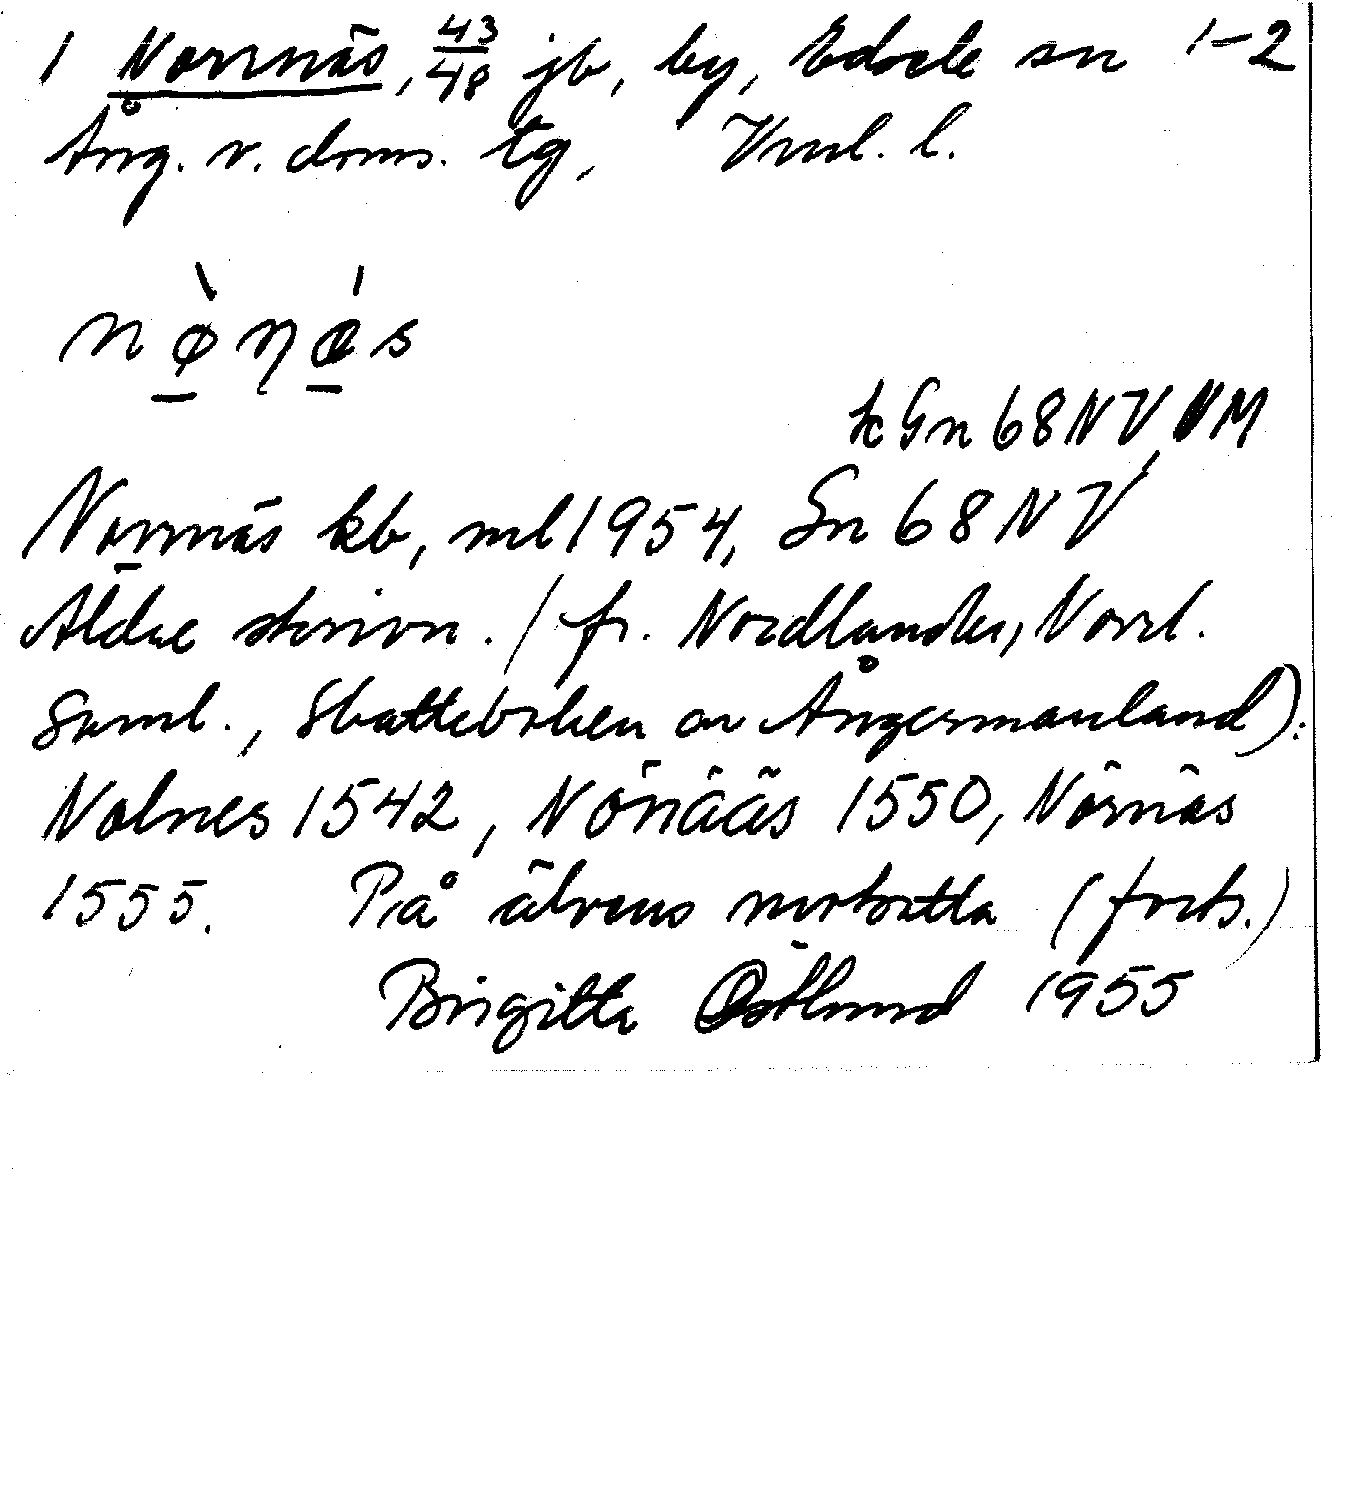 1 Norrnäs, 43/48 jb, by, Edsele sn 1-2
Ång. v. doms. tg, Vnul. l.
k Gn 68 NV, NM
Norrnäs kb, ml 1954, Gn 68 NV
Äldre skrivn. (fr. Nordlander, Norrl.
Saml., Skatteboken av Ångermanland):
Nolnes 1542, Nönääs 1550, Nörnäs
1555. På älvens norrsida (forts.)
Birgitta Östlund 1955